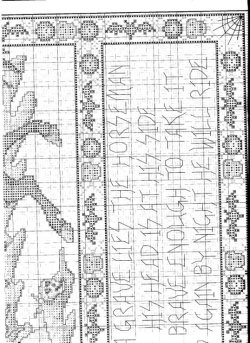 A GRAVE LIES THE HORSEMAN
HIS HEAD IS AT HIS SIDE
BRAVE ENOUGH TO TAKE IT
AGAIN BY NIGHT HE WILL RIDE